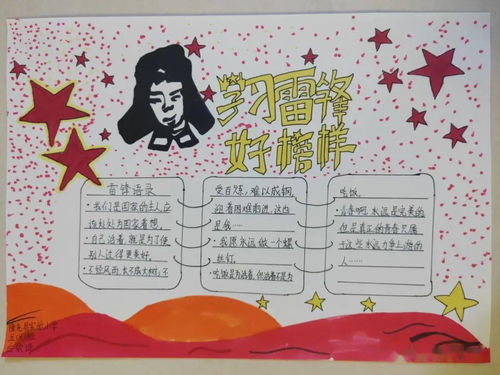 学习雷锋
好榜样
雷锋语录
·我们是国家的主人应
该处处为国家着想。
·自己活着,就是为了使
别人过得更美好。
·不经风雨,长不成大树;不
受百炼,难以成钢。
迎着困难前进,这也
是我
·我愿永远做一个螺
丝钉。
·吃饭是为活着,但活着不是为
吃饭。
·青春啊,永远是完美的
但是真正的青春只属
于这些永远力争上游的
人……